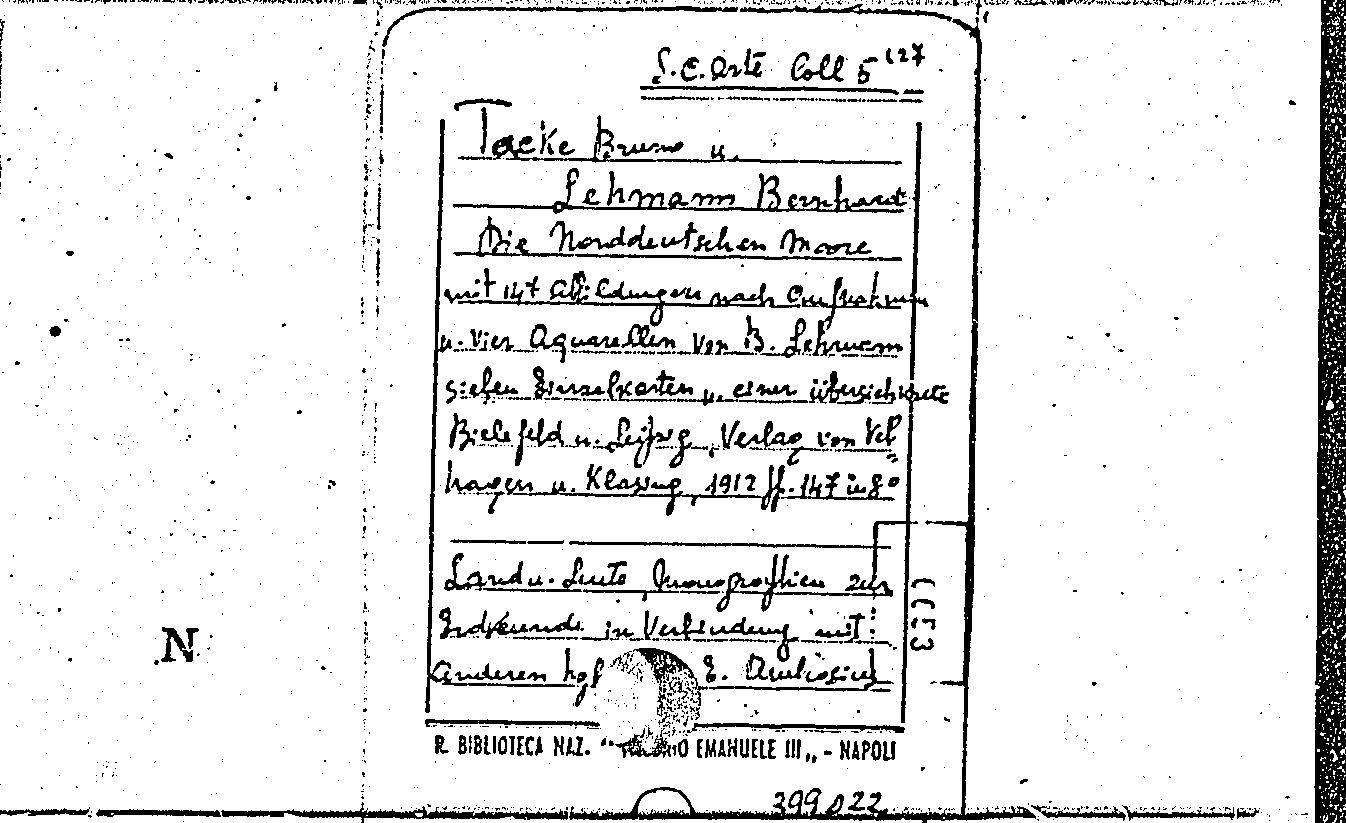 S.C. Arte Coll 5 (27
Tacke Bruno u.
Lehmann Bernhardt
Die Norddeutschen Moore
mit 147 Abbildungen nach
u. vier Aquarellen von B. Lehmann
sieben Einzelkarten u. einer übersichtskarte
Bielefeld u. Leipzig, Verlag von Vel=
hagen u. Klasing, 1912 pp. 147 in 8°
Land u. Leute, Monographien zur
Erdkunde in Verbindung mit
anderen hgb E. Ambrosius
N
R. BIBLIOTECA NAZ. " EMANUELE III„ - NAPOLI
399022